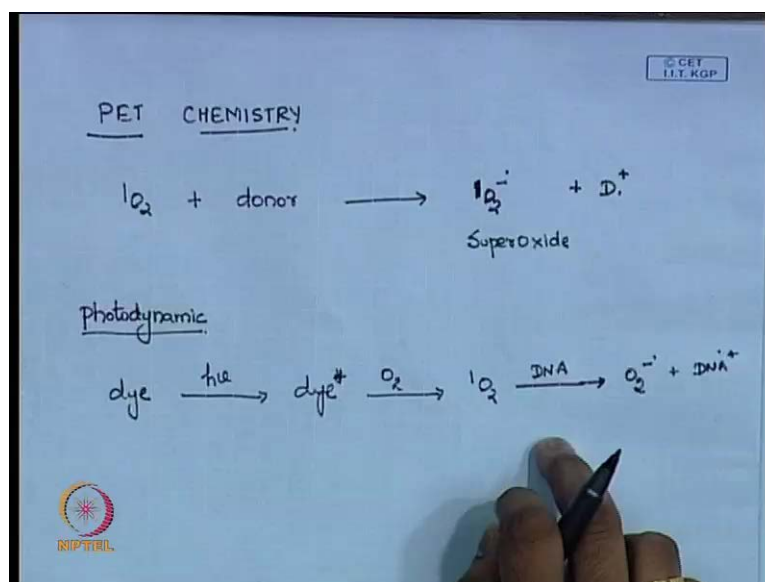 © CET
I.I.T. KGP
PET CHEMISTRY
¹O₂ + donor ⟶ ¹O₂⁻˙ + D.⁺
Superoxide
Photodynamic
dye —hν→ dye* —O₂→ ¹O₂ —DNA→ O₂⁻˙ + DNA˙⁺
NPTEL